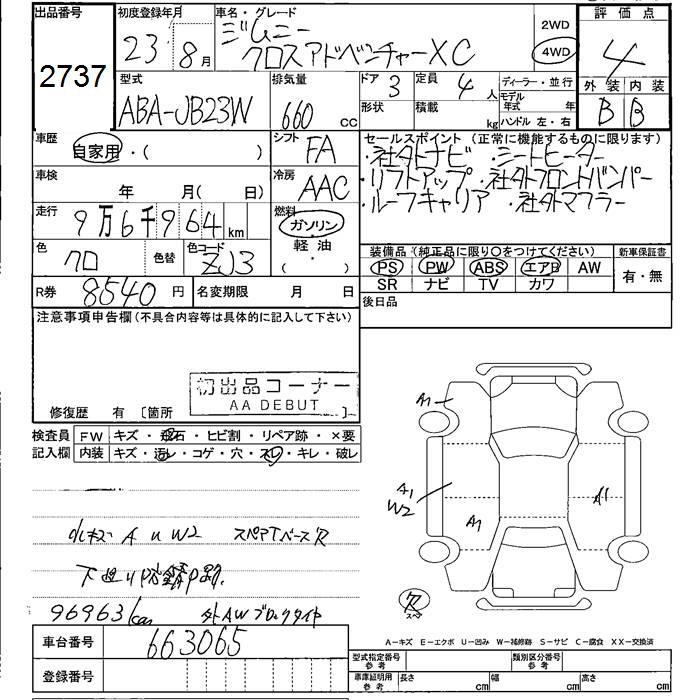 出品番号
2737
初度登録年月
23年 8月
車名・グレード
ジムニー
クロスアドベンチャーXC
2WD
4WD
評価点
4
外装 内装
B B
型式
ABA-JB23W
排気量
660 cc
ドア 3
形状
定員 4 人
積載 kg
ディーラー・並行
モデル年式 年
ハンドル 左・右
車歴
自家用・( )
シフト
FA
セールスポイント (正常に機能するものに限ります)
・社外ナビ ・シートヒーター
・リフトアップ ・社外フロントバンパー
・ルーフキャリア ・社外マフラー
車検
年 月( 日)
冷房
AAC
走行
9万6千964km
燃料
ガソリン
軽油
( ・ )
色
クロ
色替
色コード
ZJ3
装備品 (純正品に限り○をつけてください)
PS PW ABS エアB AW
SR ナビ TV カワ
新車保証書
有・無
R券 8540 円
名変期限 月 日
後日品
注意事項申告欄 (不具合内容等は具体的に記入して下さい)
初出品コーナー
AA DEBUT
修復歴 有 〔箇所 〕
検査員
記入欄
FW キズ・飛石・ヒビ割・リペア跡・×要
内装 キズ・汚レ・コゲ・穴・スレ・キレ・破レ
A1
A1
W2
A1
A1
小キズ A U W2 スペアTベース穴
下廻り防錆
96963km 外AWブロックタイヤ
穴
スペア
A-キズ E-エクボ U-凹み W-補修跡 S-サビ C-腐食 XX-交換済
車台番号
663065
登録番号
型式指定番号
参考
類別区分番号
参考
車庫証明用
参考
長さ cm
幅 cm
高さ cm